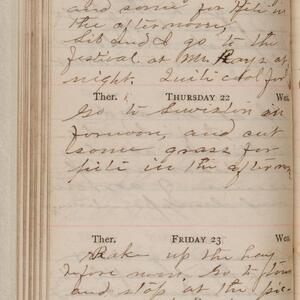 and some for Piti in
the afternoon,
Sib and I go to the
festival at Mr Rays at
night. Quite cool for
Ther. THURSDAY 22 Wea.
Go to Lewiston in
forenoon, and cut
some grass for
piti in the afternoon
Ther. FRIDAY 23 Wea.
Rake up the hay
before noon. Go to
and stop at the pic-